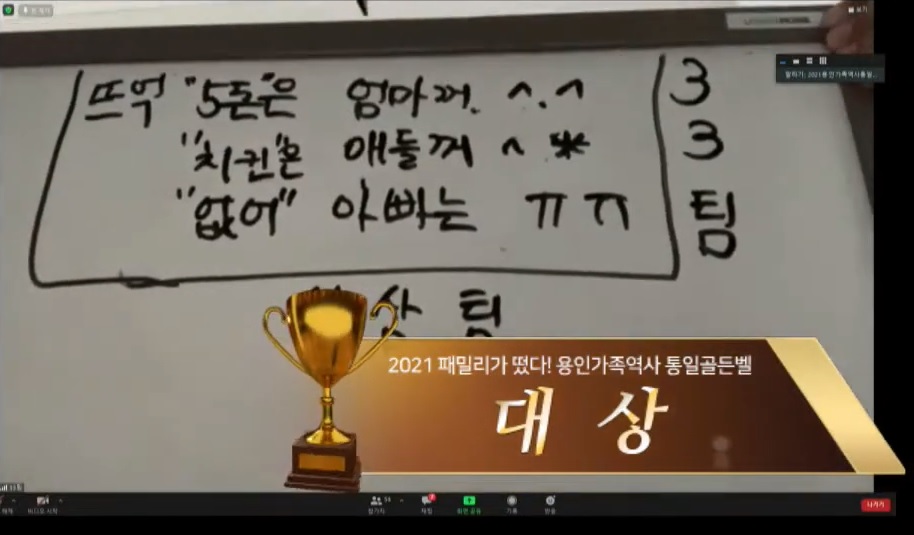 뜨억 "5돈"은 엄마꺼. ^.^
"치킨"은 애들꺼 ^*
"없어" 아빠는 ㅠㅠ
3
3
팀
상 팀
2021 패밀리가 떴다! 용인가족역사 통일골든벨
대 상
보기
말하기: 2021용인가족역사통일...
비디오 시작
참가자
채팅
화면 공유
기록
반응
나가기